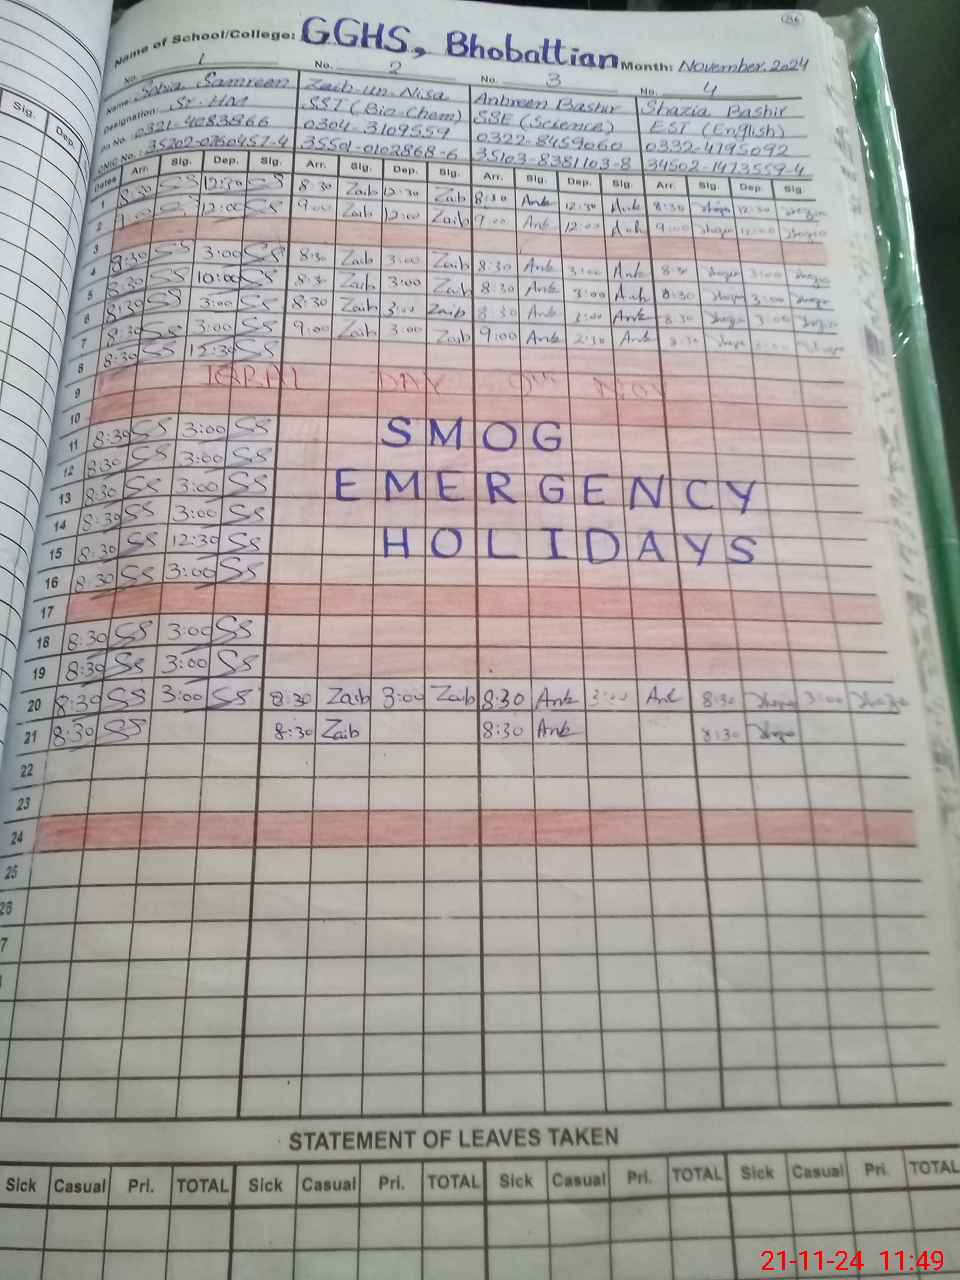 86
Name of School/College: GGHS, Bhobattian Month: November, 2024
No. 1 No. 2 No. 3 No. 4
Name: Sobia Samreen Zaib-un-Nisa Anbreen Bashir Shazia Bashir
Designation: Sr. HM SST (Bio-Chem) SSE (Science) EST (English)
0321-4083866 0304-3109559 0322-8459060 0332-4195092
CNIC No. 35202-0760457-4 35501-0102868-6 35103-8381103-8 34502-1473559-4
Dates Arr. Sig. Dep. Sig. Arr. Sig. Dep. Sig. Arr. Sig. Dep. Sig. Arr. Sig. Dep. Sig.
1 8:30 SS 12:30 SS 8:30 Zaib 12:30 Zaib 8:30 Ank 12:30 Ank 8:30 12:30
2 9:00 SS 12:00 SS 9:00 Zaib 12:00 Zaib 9:00 Ank 12:00 Ank 9:00 12:00
3
4 8:30 SS 3:00 SS 8:30 Zaib 3:00 Zaib 8:30 Ank 3:00 Ank 8:30 3:00
5 8:30 SS 10:00 SS 8:30 Zaib 3:00 Zaib 8:30 Ank 3:00 Ank 8:30 3:00
6 8:30 SS 3:00 SS 8:30 Zaib 3:00 Zaib 8:30 Ank 3:00 Ank 8:30 3:00
7 8:30 SS 3:00 SS 9:00 Zaib 3:00 Zaib 9:00 Ank 2:30 Ank 8:30
8 8:30 SS 12:30 SS
9 IQBAL DAY 9th NOV
10
11 8:30 SS 3:00 SS SMOG
12 8:30 SS 3:00 SS
13 8:30 SS 3:00 SS EMERGENCY
14 8:30 SS 3:00 SS
15 8:30 SS 12:30 SS HOLIDAYS
16 8:30 SS 3:00 SS
17
18 8:30 SS 3:00 SS
19 8:30 SS 3:00 SS
20 8:30 SS 3:00 SS 8:30 Zaib 3:00 Zaib 8:30 Ank 3:00 Ank 8:30 3:00
21 8:30 SS 8:30 Zaib 8:30 Ank 8:30
22
23
24
25
26
7
STATEMENT OF LEAVES TAKEN
Sick Casual Pri. TOTAL Sick Casual Pri. TOTAL Sick Casual Pri. TOTAL Sick Casual Pri. TOTAL
Sig. Dep.
21-11-24 11:49